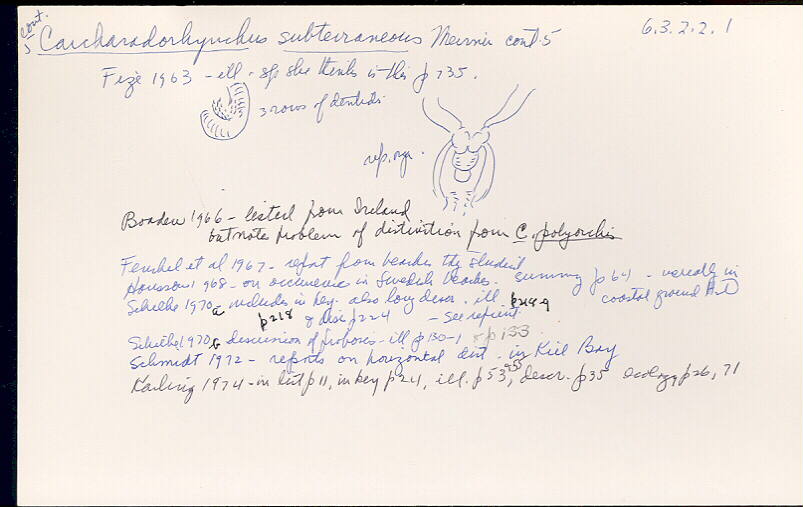 cont.
5
Carcharodorhynchus subterraneous Meixner cont. 5
6.3.2.2.1
1963 - ill - sp she thinks is this p 735.
3 rows of denticles
rep. org.
Boaden 1966 - listed from Ireland
but note problem of distinction from C. polyorchis
Fenchel et al 1967 - report from beaches they studied
1968 - on occurrence in Swedish beaches. summary p 64 - usually in
coastal ground H2O
Schilke 1970a includes in key. also long descr. ill. p218-9
p218 & disc p224 - see reprint
Schilke 1970b discussion of proboscis - ill p130-1 & p133
Schmidt 1972 - reports on horizontal dist. in Kiel Bay
Karling 1974 - in list p11, in key p24, ill. p53, 55 descr. p35 ecology p26, 71